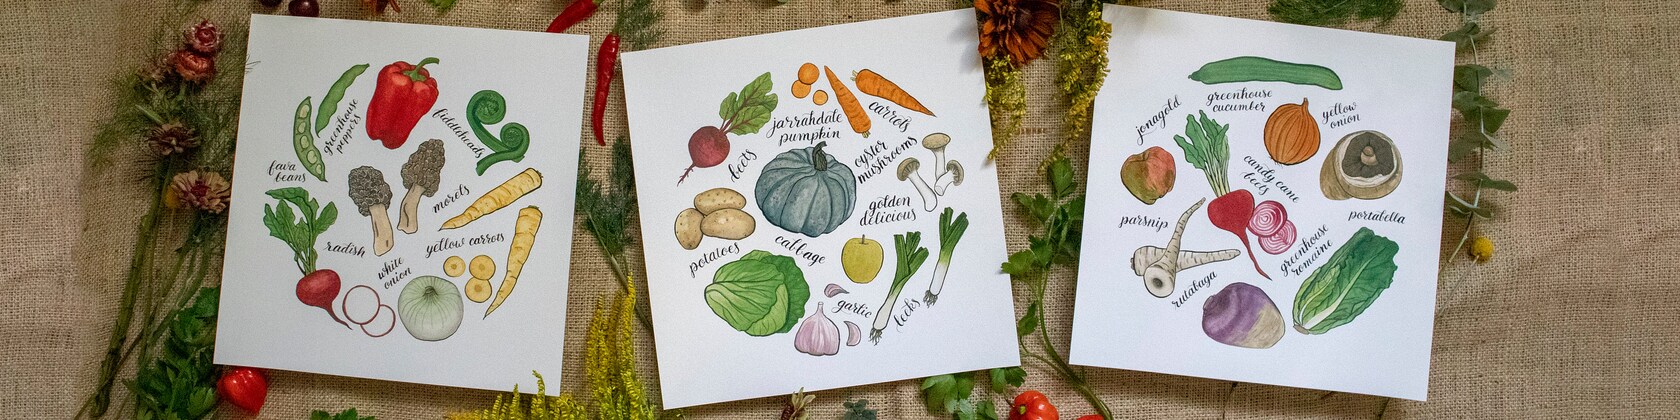 greenhouse
peppers
fiddleheads
fava
beans
morels
radish
yellow carrots
white
onion
carrots
jarrahdale
pumpkin
beets
oyster
mushrooms
golden
delicious
potatoes
cabbage
garlic
leeks
greenhouse
cucumber
jonagold
yellow
onion
candy cane
beets
parsnip
portabella
greenhouse
romaine
rutabaga